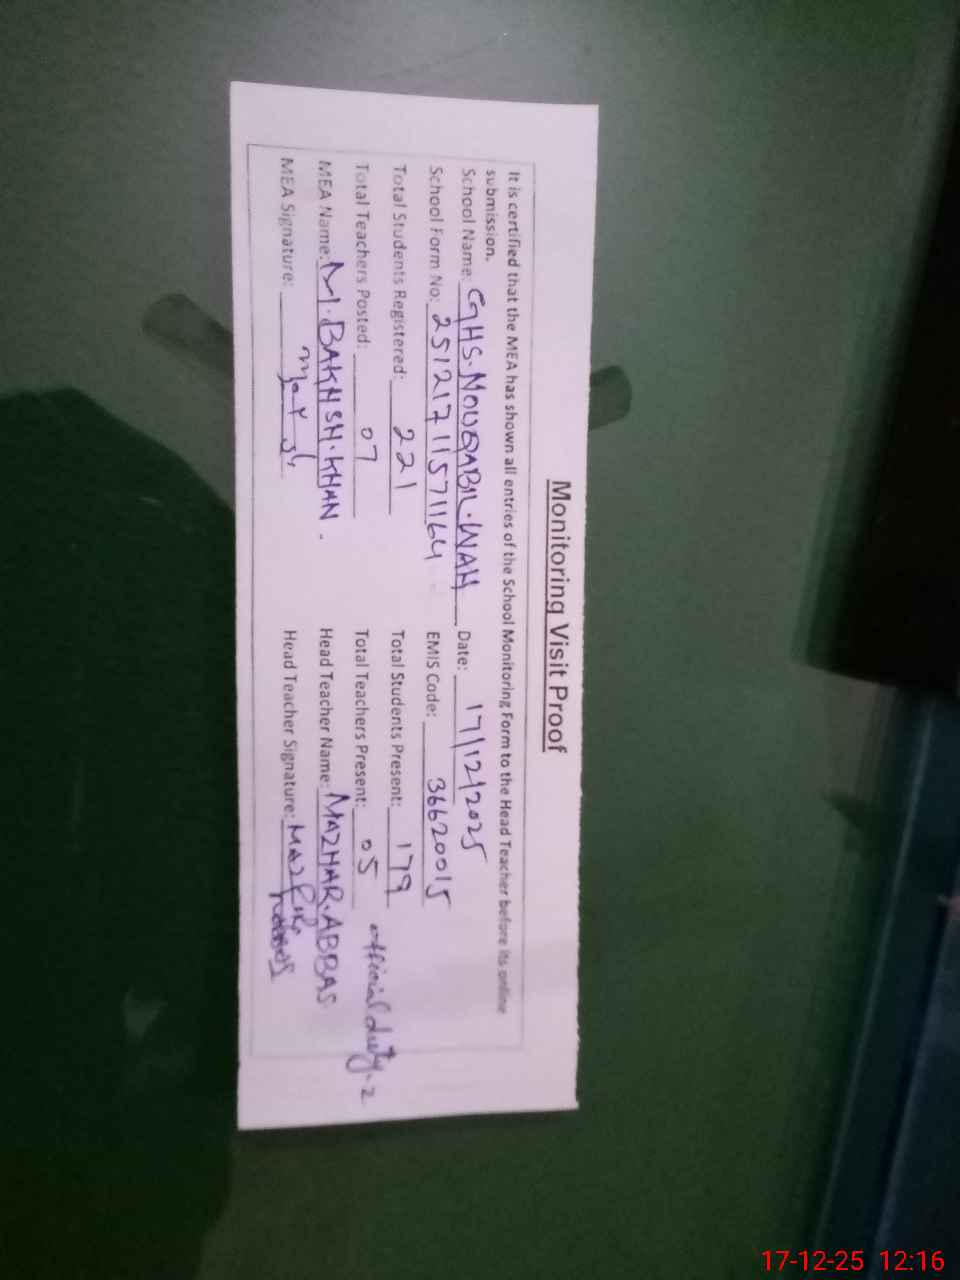 Monitoring Visit Proof
It is certified that the MEA has shown all entries of the School Monitoring Form to the Head Teacher before its online
submission.
School Name: GHS.NOUQABIL.WAH Date: 17/12/2025
School Form No: 25121711571164 EMIS Code: 36620015
Total Students Registered: 221 Total Students Present: 179
Total Teachers Posted: 07 Total Teachers Present: 05 official duty-2
MEA Name: M.BAKHSH.KHAN. Head Teacher Name: MAZHAR.ABBAS
MEA Signature: Head Teacher Signature:
17-12-25 12:16